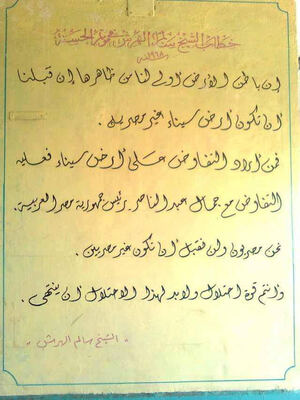 خطاب الشيخ سالم الهرش فى مؤتمر الحسنة
١٩٦٨م
إن باطن الأرض أولى لنا من ظاهرها إن قبلنا
أن تكون أرض سيناء غير مصرية.
فمن أراد التفاوض على أرض سيناء فعليه
التفاوض مع جمال عبد الناصر رئيس جمهورية مصر العربية.
نحن مصريون ولن نقبل أن نكون غير مصريين.
وأنتم قوة احتلال ولابد لهذا الاحتلال أن ينتهى.
الشيخ سالم الهرش